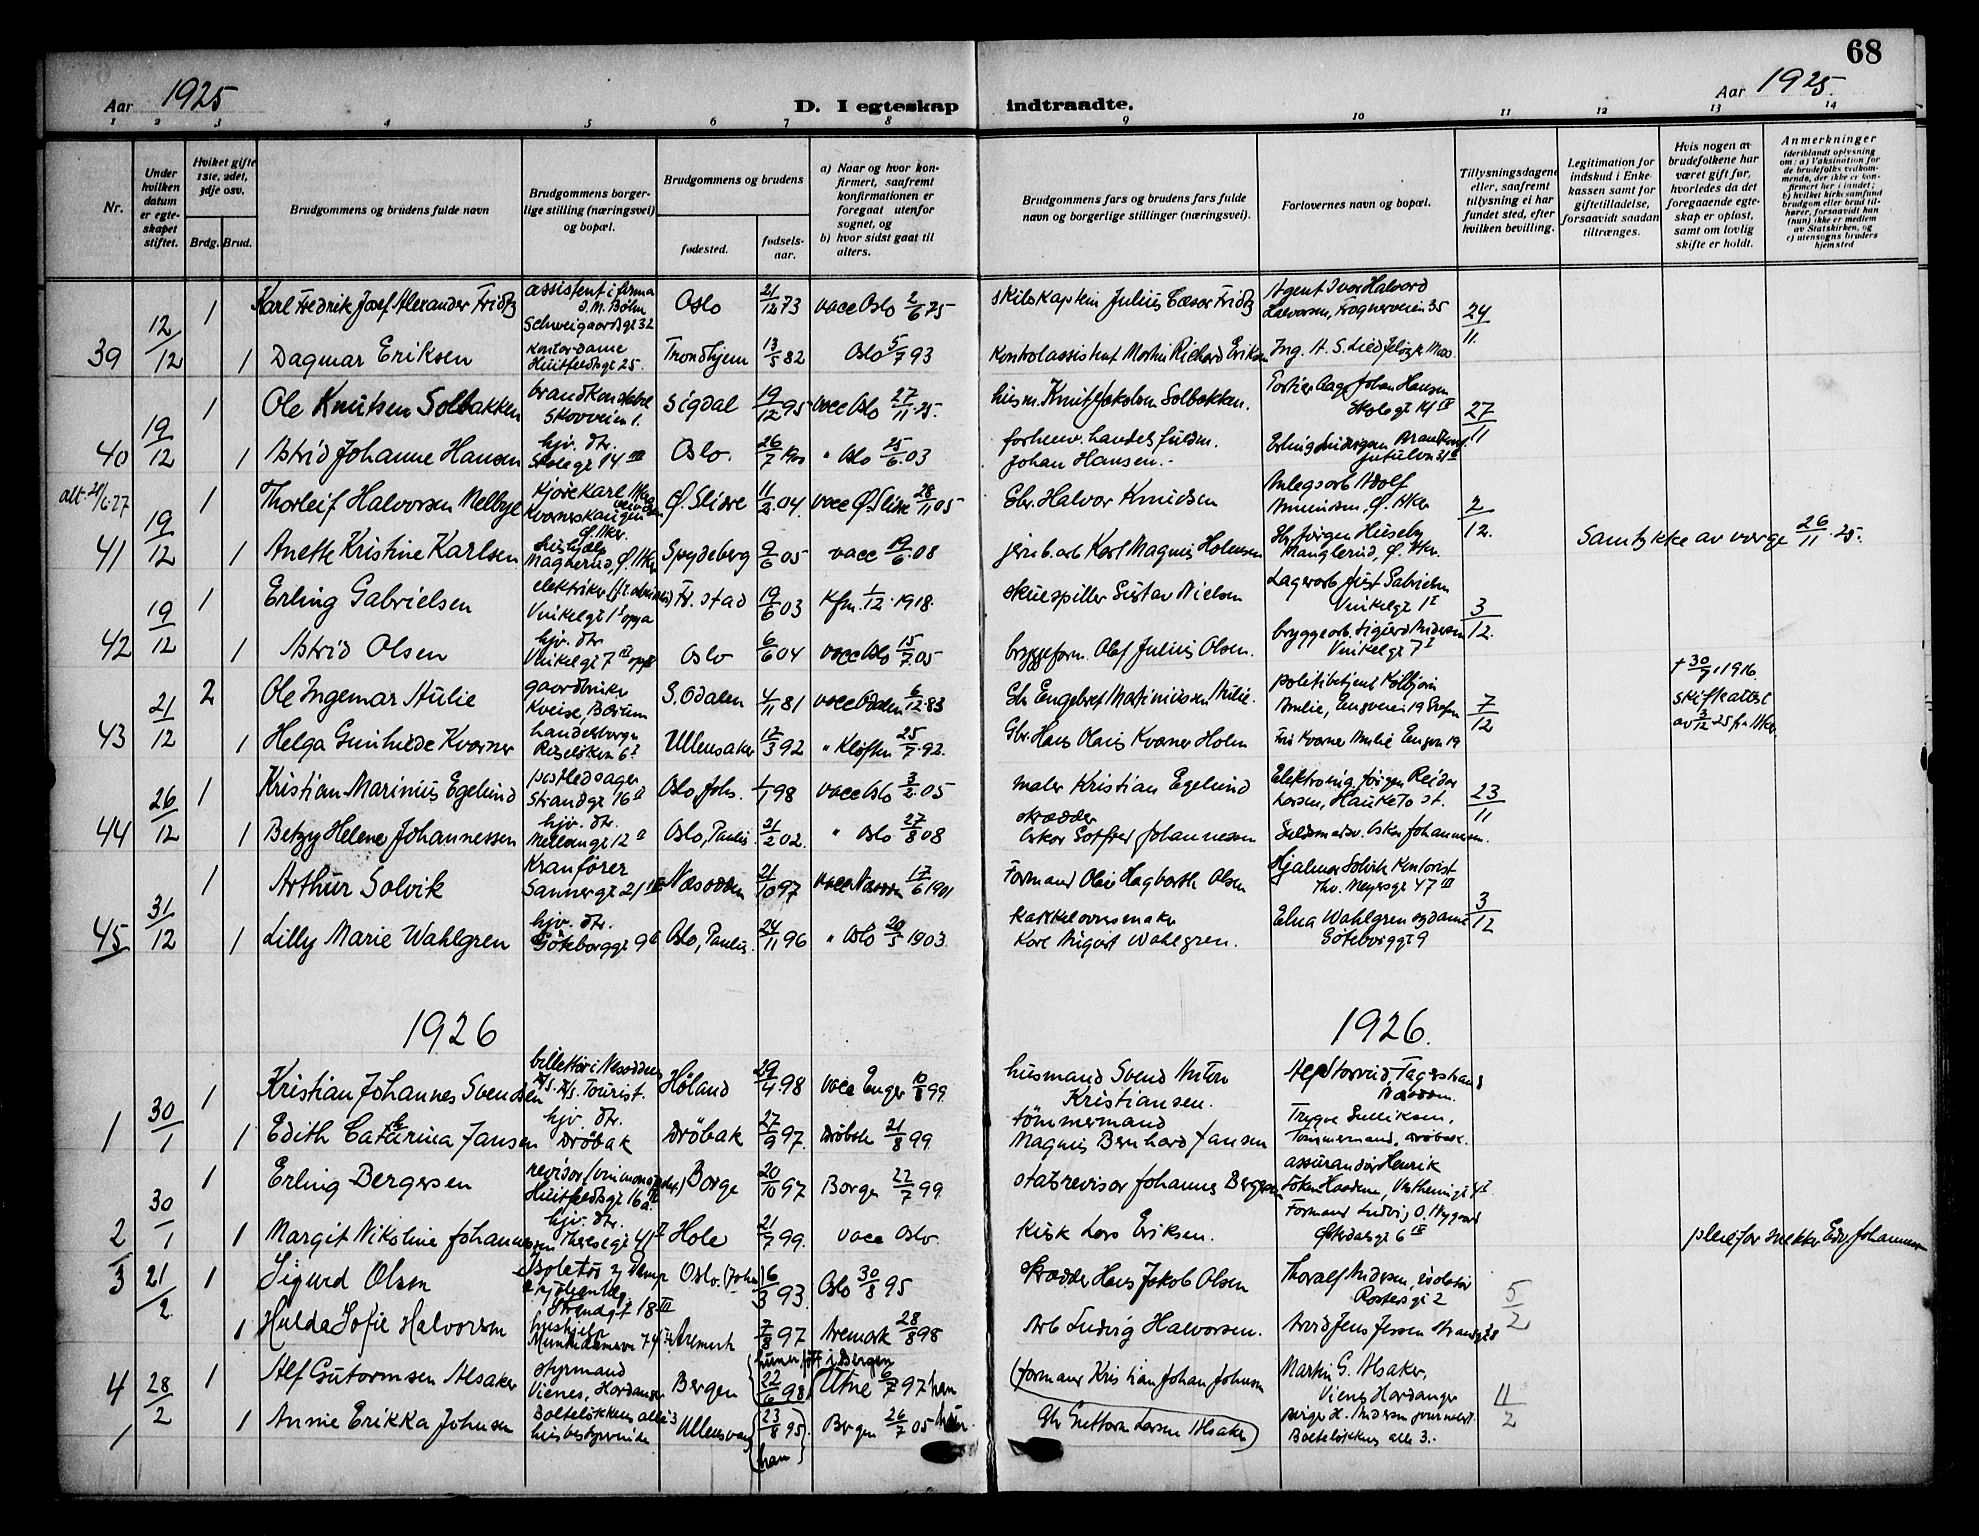 68
Aar 1925
D. I egteskap indtraadte.
Aar 1925.
1 2 3 4 5 6 7 8 9 10 11 12 13 14
Nr.
Under hvilken datum er egteskapet stiftet.
Hvilket gifte 1ste, 2det, 3dje osv.
Brdg. Brud.
Brudgommens og brudens fulde navn
Brudgommens borgerlige stilling (næringsvei) og bopæl.
Brudgommens og brudens
fødested.
fødselsaar.
a) Naar og hvor konfirmert, saafremt konfirmationen er foregaat utenfor sognet, og
b) hvor sidst gaat til alters.
Brudgommens fars og brudens fars fulde navn og borgerlige stillinger (næringsvei).
Forlovernes navn og bopæl.
Tillysningsdagene eller, saafremt tillysning ei har fundet sted, efter hvilken bevilling.
Legitimation for indskud i Enkekassen samt for giftetilladelse, forsaavidt saadan tiltrænges.
Hvis nogen av brudefolkene har været gift før, hvorledes da det foregaaende egteskap er opløst, samt om lovlig skifte er holdt.
Anmerkninger
(deriblandt oplysning om: a) Vaksination for de brudefolks vedkommende, der ikke er konfirmert her i landet; b) hvilket kirkesamfund brudgom eller brud tilhører, forsaavidt han (hun) ikke er medlem av Statskirken, og c) utensogns bruders hjemsted
1 Karl Fredrik Josef Alexander Fritz assistent i firma J. M. Bøhn Schweigaardsgt 32 Oslo 21/12 73 vacc Oslo 2/6 75 skibskaptein Julius Cæsar Fritz Agent Ivar Halvord Halvorsen, Frognerveien 35 24/11
39 12/12 1 Dagmar Eriksen kontordame Huitfeldtsgt 25. Trondhjem 13/5 82 Oslo 5/7 93 kontrolassistent Martin Richard Eriksen Ing. H. S.
1 Ole Knutsen Solbakken brandkonstabel Skovveien 1. Sigdal 19/12 95 vacc Oslo 27/11 25. husm. Knut Jakobsen Solbakken. Johan Hansen Skolegt 14 IV 27/11
40 19/12 1 Astrid Johanne Hansen hjv. dtr. Skolegt 14 III Oslo. 26/7 1900 " Oslo 25/6 03 forhenv. handelsfuldm. Johan Hansen.
alt. 21/6 27 1 Thorleif Halvorsen Melbye kjørekarl Ø. Aker Ø. Slidre 11/2 04. vacc Ø. Slidre 28/11 05 Gbr. Halvor Knudsen Anlegsarb Adolf Amundsen, Ø. Aker 2/12.
41 19/12 1 Anette Kristine Karlsen hushjælp Manglerud, Ø. Aker Spydeberg 9/6 05 vacc 19/6 08 jernb. arb Karl Magnus Holmsen Jørgen Huseby Manglerud, Ø. Aker. Samtykke av verge 26/11 25.
1 Erling Gabrielsen elektriker Vinkelgt 1 I opg a Fr. stad 19/6 03 Kfm. 1/12. 1918. skuespiller Gustav Nielsen Lagerarb Just Gabrielsen Vinkelgt 1 I 3/12.
42 19/12 1 Astrid Olsen hjv. dtr Vinkelgt 7 II opg B Oslo 6/6 04 vacc Oslo 15/7 05 byggeform. Olaf Julius Olsen. bryggearb. Sigurd Andersen Vinkelgt 7 I
2 Ole Ingemar Aulie gaardbruker Kveise, Bærum S. Odalen 4/11 81 vacc Odalen 6/12 83 Gbr Engebret Martiniussen Aulie. politibetjent Kolbjørn Aulie, Engveien 19 7/12 † 30/7 1916. skifteattest av 3/12 25 fr. Aker.
43 21/12 1 Helga Gunhilde Kværner handelsborger Ruseløkken 6 I Ullensaker 12/3 92 " Kløften 25/7 92. Gbr. Hans Olaus Kværner Holm Kværner Aulie Engvn 19
1 Kristian Marinius Egelund postledsager Strandgt 16 II Oslo, Joh. 1/1 98 vacc Oslo 3/2 05 maler Kristian Egelund Elektroing Jørgen Reider Larsen, Hauketo st. 23/11
44 26/12 1 Betzy Helene Johannessen hjv. dtr. Mellomgt 12 II Oslo, Paulus. 21/2 02. " Oslo 27/8 08 skrædder Oskar Gotfred Johannessen Guldsmedsv. Oskar Johannessen.
1 Arthur Solvik Kranfører Sannergt 21 III Næsodden 21/10 97 vacc Næsodden 17/6 1901 Formand Olai Hagbarth Olsen Hjalmar Solvik Kontorist Thv. Meyersgt 47 III 3/12
45 31/12 1 Lilly Marie Wahlgren hjv. dtr. Göteborggt 9 Oslo, Paulus. 24/11 96 " Oslo 20/5 1903. kakkelovnsmaker Karl August Wahlgren. Elna Wahlgren sydame Göteborggt 9
1926 1926.
1 Kristian Johannes Svendsen billettør i Nesoddens A/S. Tourist. Høland 29/4 98 vacc Enger 10/8 99 husmand Svend Anton Kristiansen. Alf Storrud, Fagerstrand Næsodden.
1 30/1 1 Edith Catharina Jansen hjv. dtr. Drøbak Drøbak 27/9 97. Drøbak 21/8 99 tømmermand Magnus Bernhard Jansen Trygve Gulliksen, Tømmermand, Drøbak.
1 Erling Bergersen revisor (vinmonopolet) Huitfeldtsgt 16 a Borge 20/10 97 Borge 22/7 99. statsrevisor Johannes Bergersen assurandør Henrik
2 30/1 1 Margit Nikoline Johannessen hjv. dtr. Theresegt 41 II Hole 21/7 99. vacc Oslo. Kusk Lars Eriksen. Formand Ludvig O. Nygaard 6 IV plefor snekker Edv. Johannessen
3 21/2 1 Sigurd Olsen Isolatør v/ Damp Strandgt 18 III Oslo. (Joh.) 16/3 93. Oslo 30/8 95 skrædder Hans Jakob Olsen Thoralf Andersen, isolatør Rostedsgt 2 5/2
1 Hulda Sofie Halvorsen hushjelp Munkedamsvn 74 Aremark 7/8 97 Aremark 28/8 98 Arb Ludvig Halvorsen. Arvid Jens Jessen Strandgt 18
4 28/2 1 Alf Gutormsen Alsaker styrmand Vienes, Hardanger Bergen (hun er født i Bergen 22/6 98) Utne 6/7 97 han (formann Kristian Johan Johnsen Martin G. Alsaker, Vienes Hardanger 11/2
1 Annie Erikka Johnsen Bolteløkkens alle 3 husbestyrerinde Ullensvang (23/8 95. han) Bergen 26/7 05 hun Gbr Guttorm Larsen Alsaker) Birger H. Andersen journalist. Bolteløkkens alle 3.